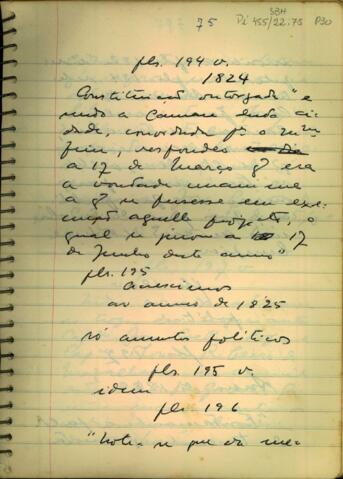 75
SBH
Pi 455/22:75 P30
fls. 194 v.
1824
Constituição outorgada "e
vindo a Camara desta ci-
dade, convidada pa o mmo
fim, respondeo
a 17 de Março q era
a vontade unanime
a q se puzesse em exe-
cução aquelle projecto, o
qual se jurou a 17
de Junho deste anno"
fls. 195
Acrescimos
ao anno de 1825
só assuntos políticos
fls. 195 v.
idem
fls 196
"Note-se que da me-